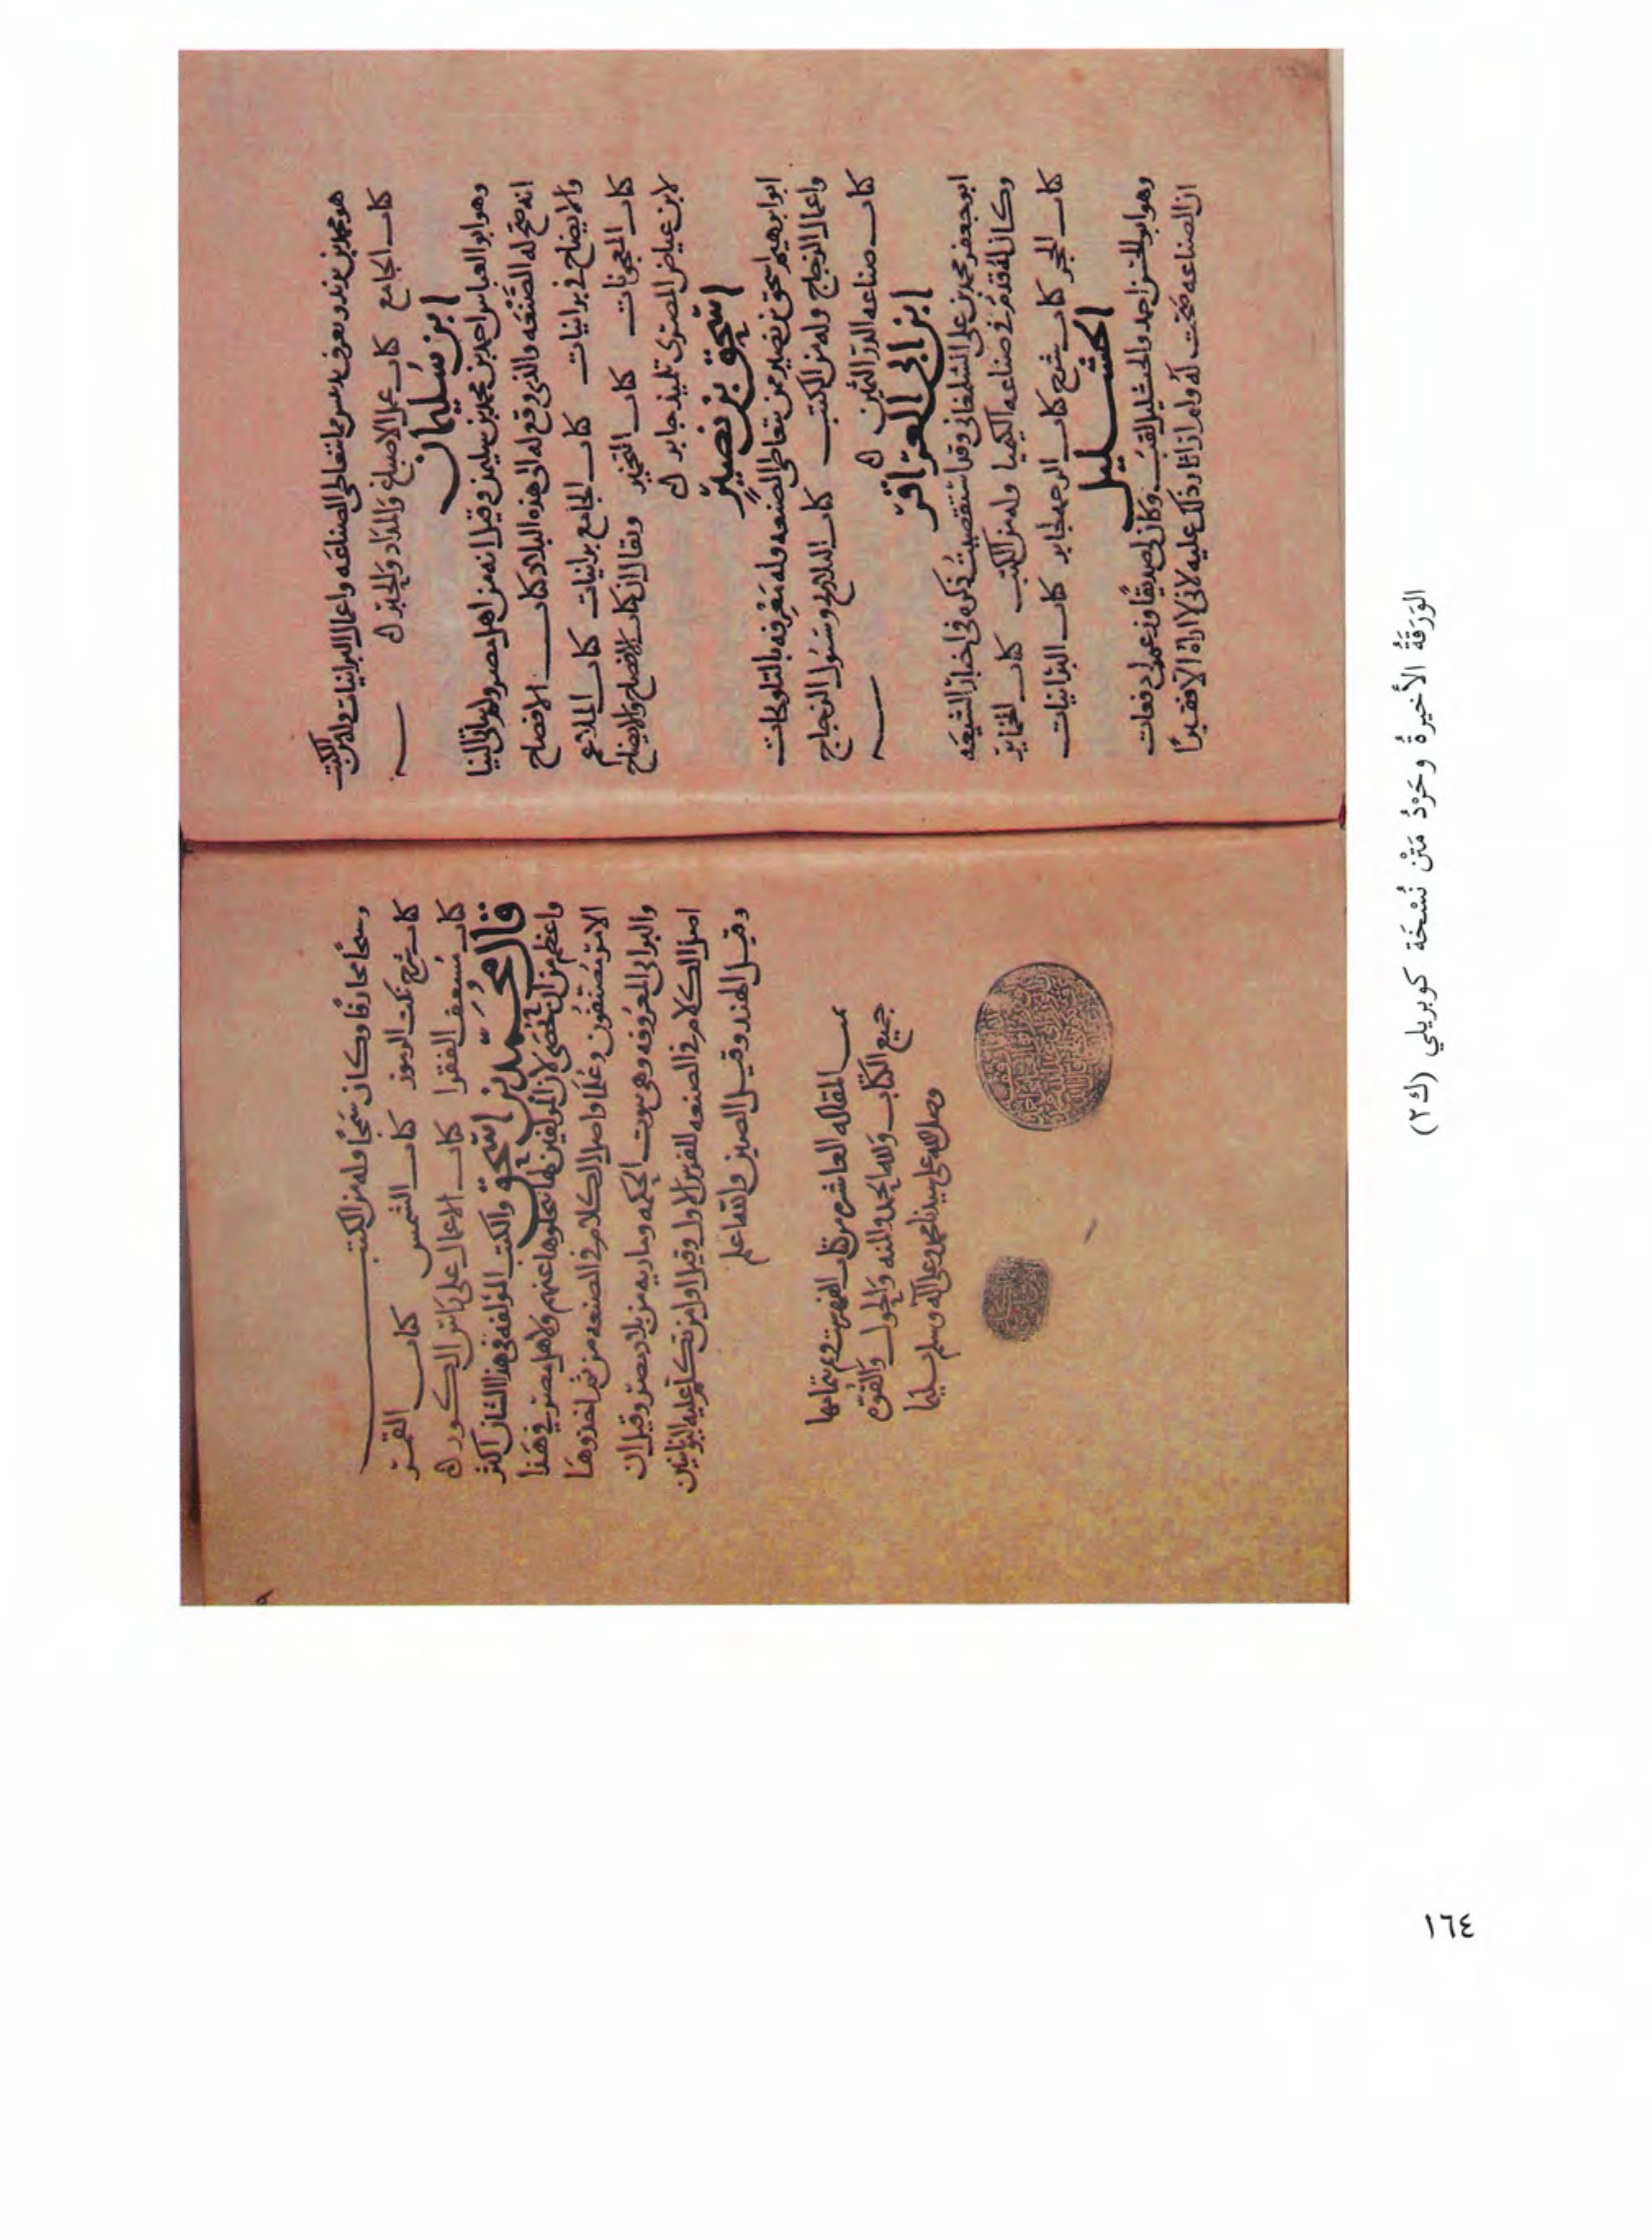 هو محمد بن يزيد ويعرف بدبيس ممن يتعاطى الصناعه واعمال البرانيات وله من الكتب
كتاب الجامع كتاب عمل الاصباغ والمداد والحبر
ابن سليمان
وهو ابو العباس احمد بن محمد بن سليمن وقيل انه من اهل مصر ولم يتاتى الينا
انه صح له الصنعه والذي وقع له الى هذه البلاد كتاب الافصاح
والايضاح في برانيات كتاب الجامع برانيات كتاب الملاغم
كتاب المعجونات كتاب التخمير ويقال ان كتاب الافصاح والايضاح
لابن عياض المصرى تلميذ جابر
اسحق بن نصير
ابو ابرهيم اسحق بن نصير ممن يتعاطى الصنعه وله معرفه بالتلويحات
واعمال الزجاج وله من الكتب كتاب التلاويح وسيول الزجاج
كتاب صناعه الدر الثمين
ابن ابي العزاقر
ابو جعفر محمد بن على الشلمغانى وقد استقصيت ذكره فى اخبار الشيعه
وكان له قدم في صناعه الكيميا وله من الكتب كتاب الخماير
كتاب الحجر كتاب شرح كتاب الرحمه لجابر كتاب البرانيات
الخنشليل
وهو ابو الحسن احمد والخنشليل لقب وكان لي صديقا وزعم لى دفعات
ان الصناعه صحت له ولم ار اثار ذلك عليه لانى لا اراه الا فقيرا
وشيخا محارفا وكان سمجا وله من الكتب
كتاب شرح نكت الرموز كتاب الشمس كتاب القمر
كتاب مسعف الفقرا كتاب الاعمال على راس الكور
قال محمد بن اسحق والكتب المؤلفه فى هذا الشان اكثر
واعظم من ان تحصى لان المولفين لها نحلوها عنهم ولاهل مصر في هذا
الامر مصنفون وعلما واصل الكلام في الصنعه من ثم اخذوها
والبرابى المعروفه وهي بيوت الحكمه وماريه من بلاد مصر وقيل ان
اصل الكلام في الصنعه للفرس الاول وقيل اول من تكلم عليه اليونانين
وقيل الهند وقيل الصين والله اعلم
تمت المقاله العاشره من كتاب الفهرست وتم بتمامها
جميع الكتاب ولله الحمد والمنه والحول والقوه
وصلى الله على سيدنا محمد وعلى آله وسلم تسليما
الوَرَقَةُ الأخيرةُ وحَرْدُ مَتْن نُسْخَة كوبريلي (ك٢)
١٦٤